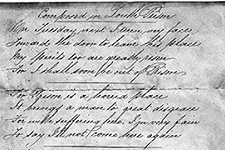 Composed in South Prison
On Tuesday next I turn my face
Toward the door to leave this place
My Spirits too are greatly risen
For I shall soon be out of Prison
For Prison is a tiresome place
It brings a man to great disgrace
For man suffering here I am very fain
To say I'll not come here again